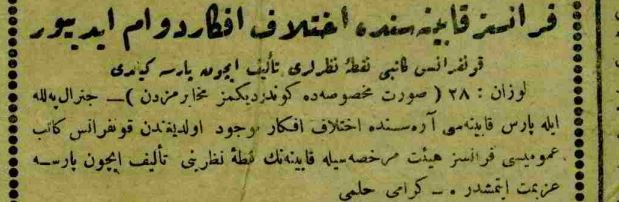 فرانسز قابینه‌سنده اختلاف افکار دوام ایدییور
قونفرانس کاتبی نقطهٔ نظرلری تألیف ایچون پارسه کیتدی
لوزان : ٢٨ ( صورت مخصوصه‌ده کوندردیکمز مخابرمزدن ) — جنرال په‌لله
ایله پارس قابینه‌سی آره‌سنده اختلاف افکار موجود اولدیغندن قونفرانس کاتب
عمومیسی فرانسز هیئت مرخصه‌سیله قابینه‌نك نقطهٔ نظرینی تألیف ایچون پارسه
عزیمت ایتمشدر . — کرامی حلمی